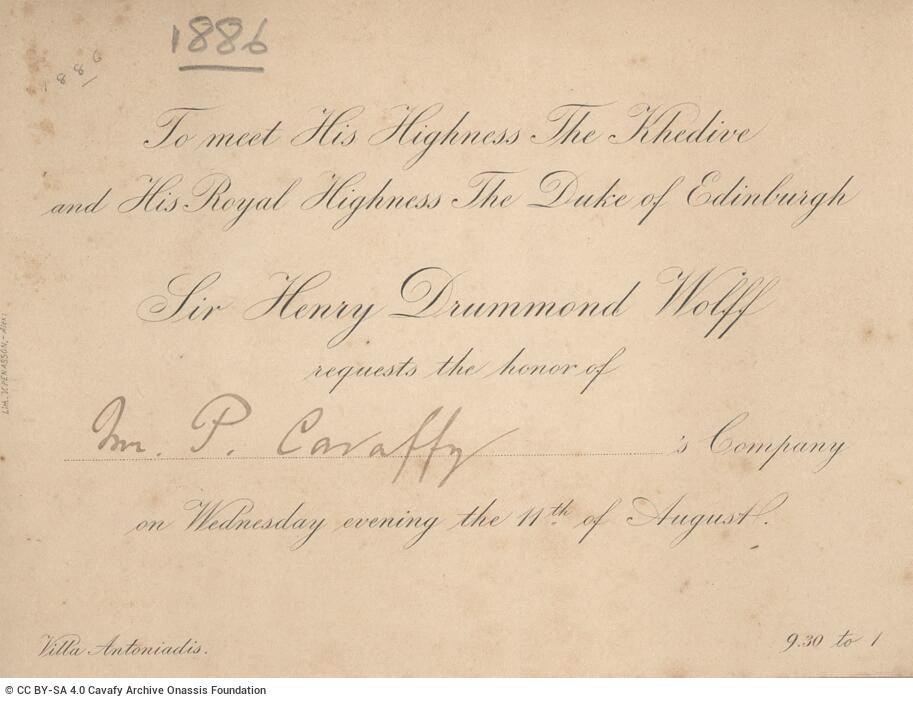 1886
1886
To meet His Highness The Khedive
and His Royal Highness The Duke of Edinburgh
Sir Henry Drummond Wolff
requests the honor of
Mr. P. Cavaffy 's Company
on Wednesday evening the 11th of August.
Villa Antoniadis.
9.30 to 1
Lith. V. PENASSON,- Alex:
© CC BY-SA 4.0 Cavafy Archive Onassis Foundation